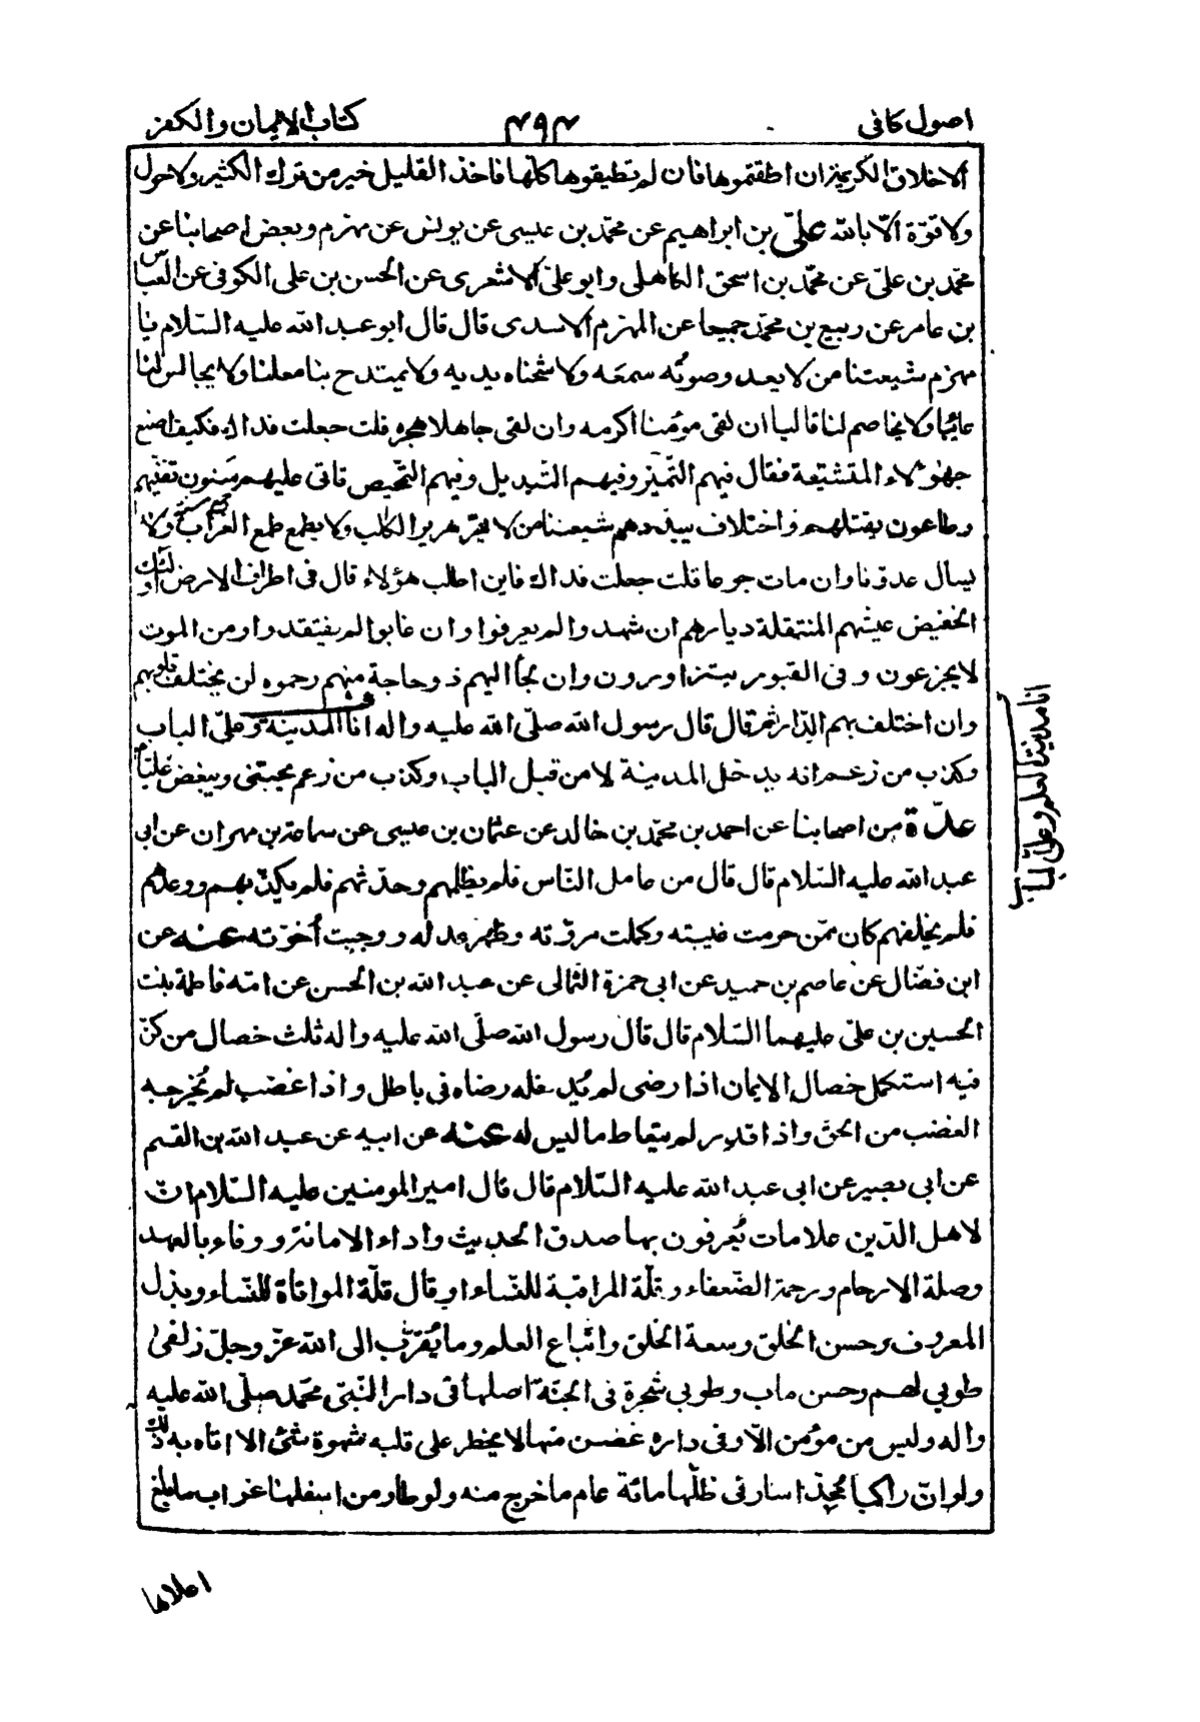 اصول كافى
۴۹۴
كتاب الايمان والكفر
الاخلاق الكريمة ان اطقتموها فان لم تطيقوها كلّها فاخذ القليل خير من ترك الكثير ولا حول
ولا قوّة الّا بالله علىّ بن ابراهيم عن محمّد بن عيسى عن يونس عن مهزم وبعض اصحابنا عن
محمّد بن علىّ عن محمّد بن اسحق الكاهلى وابو علىّ الاشعرى عن الحسن بن على الكوفى عن العبّاس
بن عامر عن ربيع بن محمّد جميعا عن المهزم الاسدى قال قال ابو عبد الله عليه السّلام يا
مهزم شيعتنا من لا يعد وصوتُه سمعَه ولا شحناه يديه ولا يمتدح بنا معلنا ولا يجالس لنا
عائبا ولا يخاصم لنا قاليا ان لقى مؤمنا اكرمه وان لقى جاهلا هجره قلت جعلت فداك فكيف اصنع
بهؤلاء المتشيّعة فقال فيهم التّميز وفيهم التّبديل وفيهم التّمحيص تاتى عليهم سنون تفنيهم
وطاعون يقتلهم واختلاف يبدّدهم شيعتنا من لا يهرّ هرير الكلب ولا يطمع طمع الغراب ولا
يسال عدوّنا وان مات جوعا قلت جعلت فداك فاين اطلب هؤلاء قال فى اطراف الارض اولئك
الخفيض عيشهم المنتقلة ديارهم ان شهدوا لم يعرفوا وان غابوا لم يفتقدوا ومن الموت
لا يجزعون وفى القبور يتزاورون وان لجأ اليهم ذو حاجة منهم رحموه لن يختلف قلوبهم
وان اختلف بهم الدّار ثم قال قال رسول الله صلّى الله عليه واله انا المدينة وعلىّ الباب
وكذب من زعم انه يدخل المدينة لا من قبل الباب وكذب من زعم يحبّنى ويبغض عليّا
عدّة من اصحابنا عن احمد بن محمّد بن خالد عن عثمان بن عيسى عن سماعة بن مهران عن ابى
عبد الله عليه السّلام قال قال من عامل النّاس فلم يظلمهم وحدّثهم فلم يكذبهم ووعدهم
فلم يخلفهم كان ممّن حرمت غيبته وكملت مروّته وظهر عدله ووجبت أخوّته عنه عن
ابن فضّال عن عاصم بن حميد عن ابى حمزة الثّمالى عن عبد الله بن الحسن عن امّه فاطمة بنت
الحسين بن علىّ عليهما السّلام قال قال رسول الله صلّى الله عليه واله ثلث خصال من كنّ
فيه استكمل خصال الايمان اذا رضى لم يُدخله رضاه فى باطل واذا غضب لم يُخرجه
الغضب من الحقّ واذا قدر لم يتعاط ما ليس له عنه عن ابيه عن عبد الله بن القسم
عن ابى بصير عن ابى عبد الله عليه السّلام قال قال امير المومنين عليه السّلام انّ
لاهل الدّين علامات يُعرفون بها صدق الحديث واداء الامانة ووفاء بالعهد
وصلة الارحام ورحمة الضّعفاء وقلّة المراقبة للنّساء او قال قلّة المواتاة للنّساء وبذل
المعروف وحسن الخلق وسعة الخلق واتّباع العلم وما يُقرّب الى الله عزّ وجلّ زلفى
طوبى لهم وحسن ماب وطوبى شجرة فى الجنّة اصلها فى دار النّبىّ محمّد صلّى الله عليه
واله وليس من مؤمن الّا وفى داره غصن منها لا يخطر على قلبه شهوة شئ الا اتاه به ذلك
ولو انّ راكبا مُجدّا سار فى ظلّها مائة عام ما خرج منه ولو طار من اسفلها غراب ما بلغ
اعلاها
انا مدينة العلم وعلىّ الباب